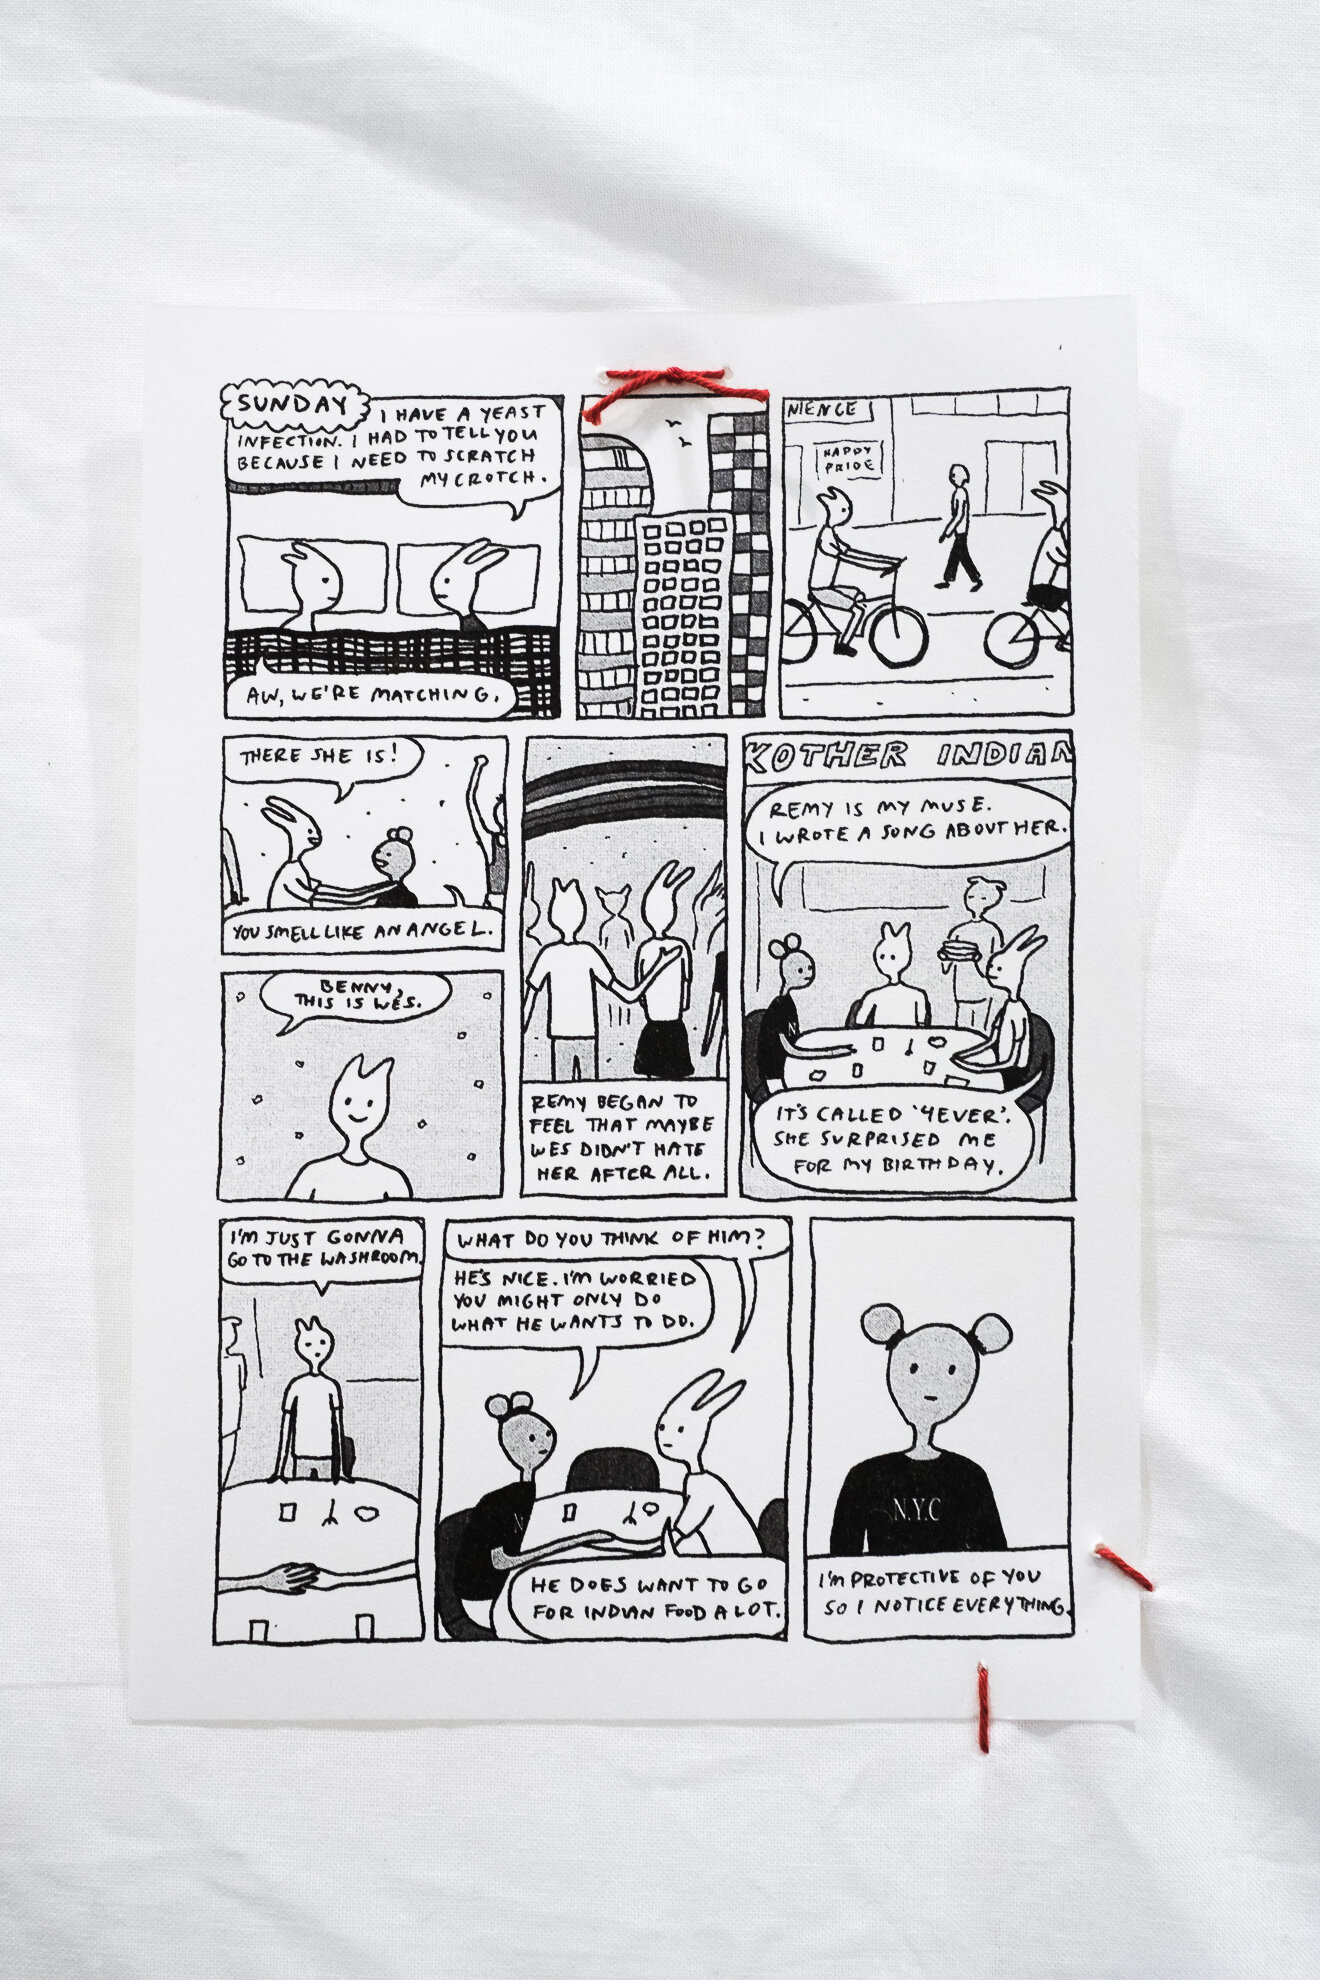 SUNDAY
I HAVE A YEAST
INFECTION. I HAD TO TELL YOU
BECAUSE I NEED TO SCRATCH
MY CROTCH.
AW, WE'RE MATCHING.
NIENCE
HAPPY
PRIDE
THERE SHE IS!
YOU SMELL LIKE AN ANGEL.
BENNY,
THIS IS WES.
REMY BEGAN TO
FEEL THAT MAYBE
WES DIDN'T HATE
HER AFTER ALL.
KOTHER INDIAN
REMY IS MY MUSE.
I WROTE A SONG ABOUT HER.
N
IT'S CALLED '4EVER'.
SHE SURPRISED ME
FOR MY BIRTHDAY.
I'M JUST GONNA
GO TO THE WASHROOM.
WHAT DO YOU THINK OF HIM?
HE'S NICE. I'M WORRIED
YOU MIGHT ONLY DO
WHAT HE WANTS TO DO.
N
HE DOES WANT TO GO
FOR INDIAN FOOD A LOT.
N.Y.C
I'M PROTECTIVE OF YOU
SO I NOTICE EVERYTHING.